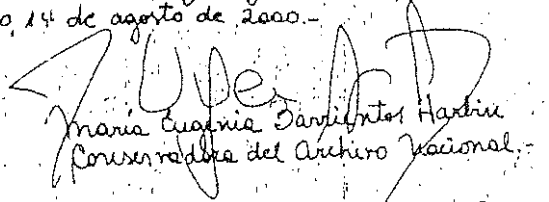 o, 14 de agosto de 2000.-
María Eugenia Barrientos Harbin
Conservadora del Archivo Nacional.-